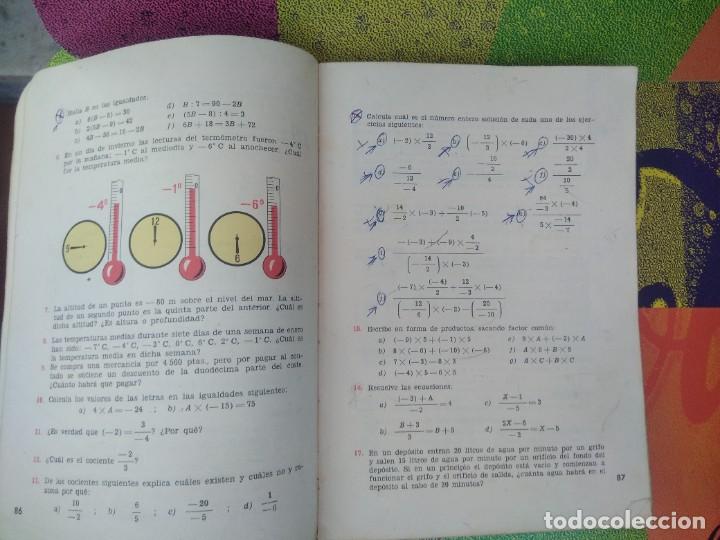 Halla B en las igualdades:
a) 4(B−5) = 20
d) B : 7 = 90 − 2B
b) 2(5B−9) = 42
e) (5B − 8) : 4 = 3
c) 4B − 36 = 18 − 2B
f) 6B + 18 = 3B + 72
6. En un día de invierno las lecturas del termómetro fueron −4° C
por la mañana; −1° C al mediodía y −6° C al anochecer. ¿Cuál
fue la temperatura media?
−4° −1° −6°
9 12 6
7. La altitud de un punto es −80 m sobre el nivel del mar. La alti-
tud de un segundo punto es la quinta parte del anterior. ¿Cuál es
dicha altitud? ¿Es altura o profundidad?
8. Las temperaturas medias durante siete días de una semana de enero
han sido: −7° C, −4° C, −3° C, 0° C, 6° C, 2° C, −1° C. ¿Cuál es
la temperatura media en dicha semana?
9. Se compra una mercancía por 4 560 ptas., pero por pagar al con-
tado se obtiene un descuento de la duodécima parte del coste.
¿Cuánto habrá que pagar?
10. Calcula los valores de las letras en las igualdades siguientes:
a) 4 × A = −24 ; b) A × (−15) = 75
11. ¿Es verdad que (−2) = 3/−4? ¿Por qué?
12. ¿Cuál es el cociente −2/3?
13. De los cocientes siguientes explica cuáles existen y cuáles no y
por qué:
a) 10/−2 ; b) 6/5 ; c) −20/−5 ; d) 1/−6
86
Calcula cuál es el número entero solución de cada uno de los ejer-
cicios siguientes:
a) (−2) × 12/3
c) (−30) × 4 / 2 × 4
15. Escribe en forma de productos, sacando factor común:
a) (−9) × 5 + (−1) × 5
e) 9 × A + (−2) × A
b) 8 × (−6) + (−10) × (−6)
f) A × 6 + B × 5
c) 7 × (−3) − 8 × 3
g) A × C + B × C
d) (−4) × 5 − 6 × 5
16. Resuelve las ecuaciones:
a) (−3) + A / −2 = 4
c) X − 1 / −5 = 3
b) B + 3 / 3 = B + 5
d) 2X − 5 / −3 = X − 5
17. En un depósito entran 20 litros de agua por minuto por un grifo
y salen 15 litros de agua por minuto por un orificio del fondo del
depósito. Si en un principio el depósito está vacío y comienzan a
funcionar el grifo y el orificio de salida, ¿cuánta agua habrá en el
depósito al cabo de 20 minutos?
87
todocoleccion.net